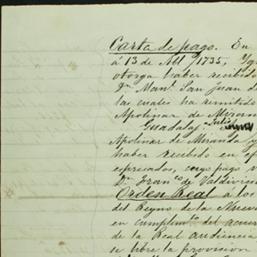 Carta de pago. En
á 13 de Abl 1735, Ygn
otorga haber recibido
Dn Manl. San Juan de
las cuales ha remitido
Apolinar de Miran
Guadalaj Julio
Apolinar de Miranda y
haber recibido en of
espresados, cuyo pago v
Dn Franco de Valdivies
Orden Real á los
del Reyno de la Nueva
en cumplimto del acuer
de la Real audiencia
se libre la provision